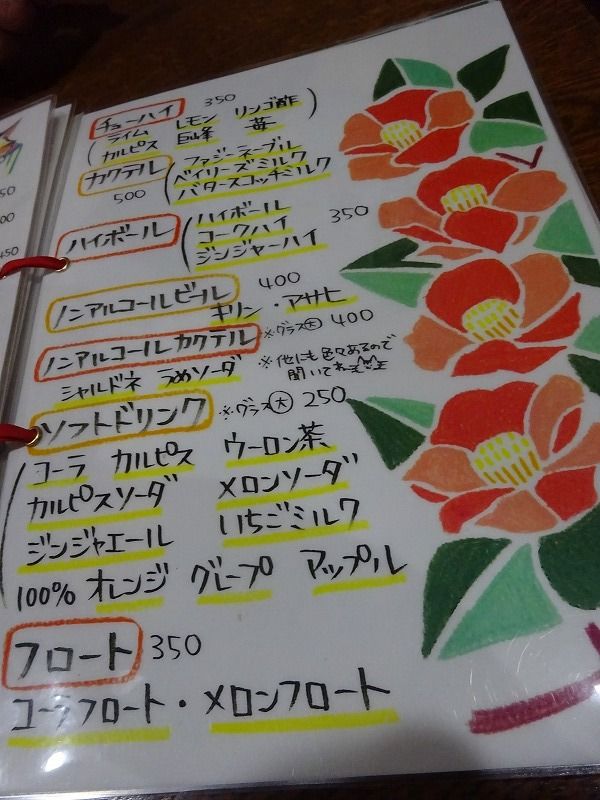 チューハイ 350
(ライム レモン リンゴ酢
カルピス 巨峰 苺)
カクテル 500
(ファジーネーブル
ベイリーズミルク
バタースコッチミルク
ハイボール 350
(ハイボール
コークハイ
ジンジャーハイ
ノンアルコールビール 400
キリン・アサヒ
ノンアルコールカクテル ※グラス大 400
シャルドネ うめソーダ
※他にも色々あるので
聞いてね
ソフトドリンク ※グラス大 250
(コーラ カルピス ウーロン茶
カルピスソーダ メロンソーダ
ジンジャエール いちごミルク
100% オレンジ グレープ アップル
フロート 350
コーラフロート・メロンフロート
50
00
450